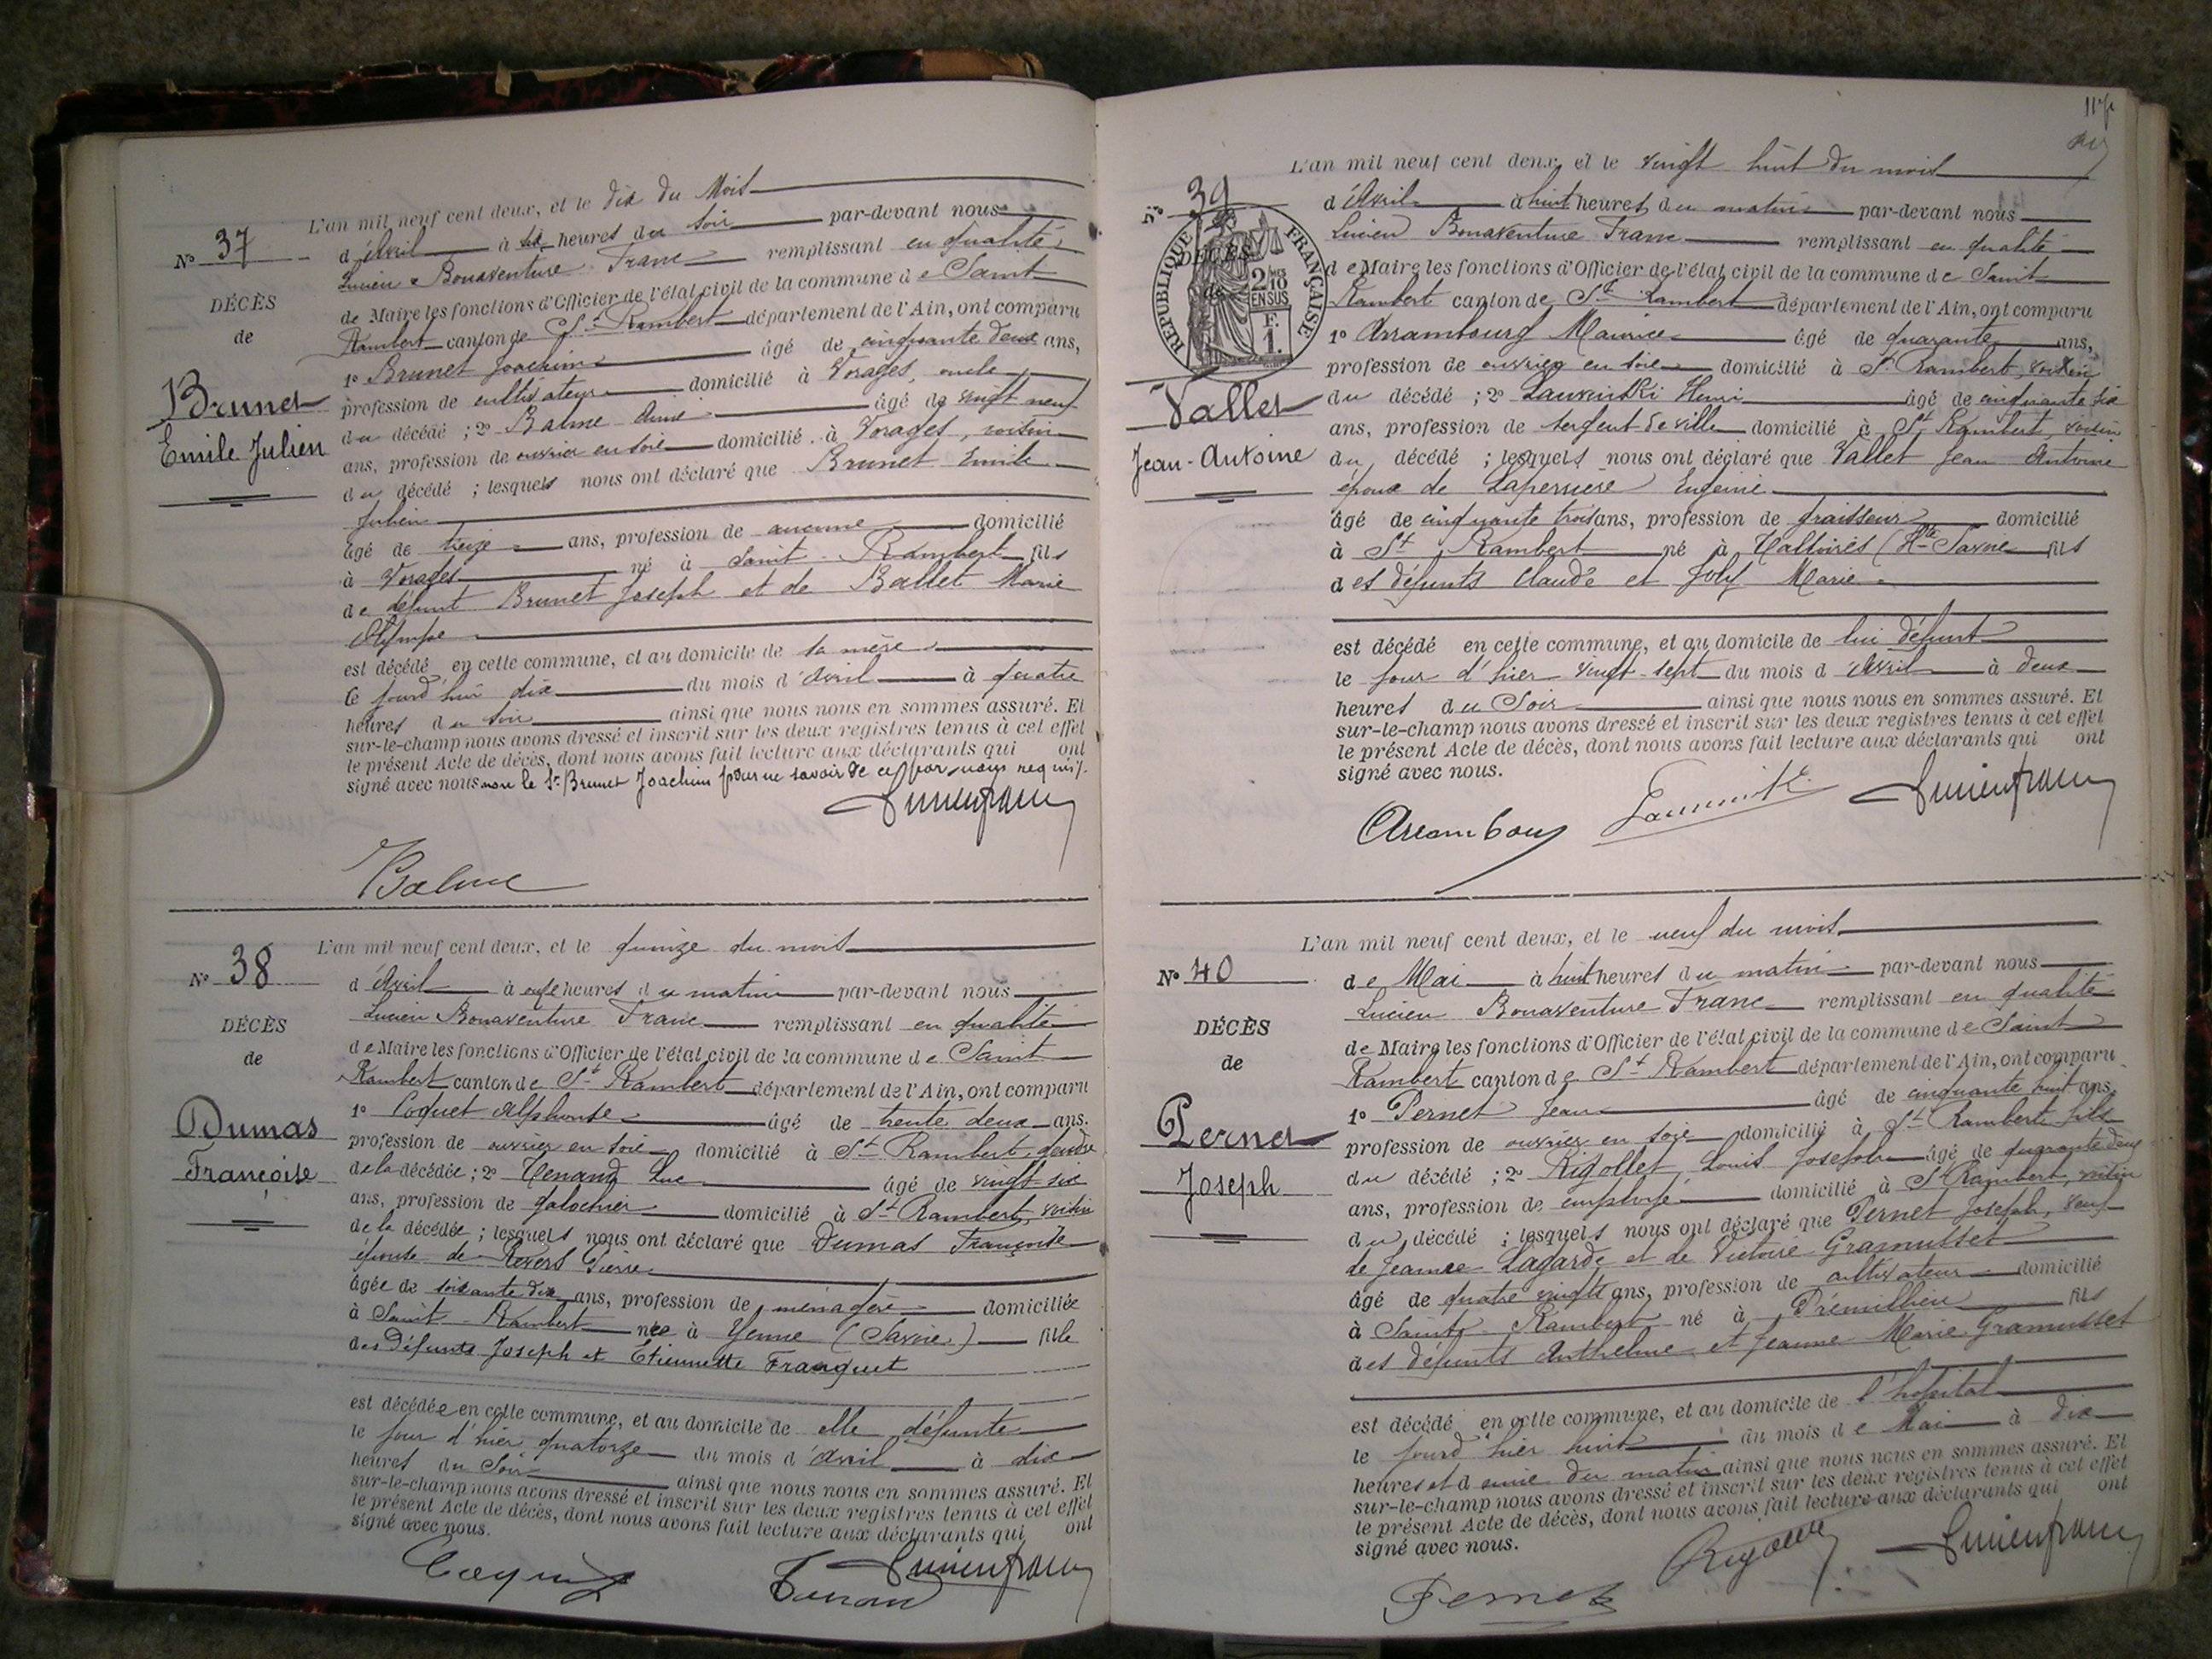 L'an mil neuf cent deux, et le dix du Mois
N° 37
d'Avril à six heures du soir par-devant nous
Lucien Bonaventure Franc remplissant en qualité
de Maire les fonctions d'Officier de l'état civil de la commune de Saint
Rambert canton de St Rambert département de l'Ain, ont comparu
1° Brunet Joachim âgé de cinquante deux ans,
profession de cultivateur domicilié à Vorages, oncle
du décédé ; 2° Balme Aimé âgé de vingt neuf
ans, profession de ouvrier en soie domicilié à Vorages, voisin
du décédé ; lesquels nous ont déclaré que Brunet Emile
Julien
DÉCÈS
de
Brunet
Emile Julien
âgé de treize ans, profession de aucune domicilié
à Vorages né à Saint Rambert fils
de défunt Brunet Joseph et de Ballet Marie
Olympe
est décédé en cette commune, et au domicile de sa mère
ce jourd'hui dix du mois d'Avril à quatre
heures du soir ainsi que nous nous en sommes assuré. Et
sur-le-champ nous avons dressé et inscrit sur les deux registres tenus à cet effet
le présent Acte de décès, dont nous avons fait lecture aux déclarants qui ont
signé avec nous non le Sr Brunet Joachim pour ne savoir de ce par nous requis.
Lucien Franc
Balme
L'an mil neuf cent deux, et le quinze du mois
N° 38
d'Avril à onze heures du matin par-devant nous
Lucien Bonaventure Franc remplissant en qualité
de Maire les fonctions d'Officier de l'état civil de la commune de Saint
Rambert canton de St Rambert département de l'Ain, ont comparu
1° Coquet Alphonse âgé de trente deux ans.
profession de ouvrier en soie domicilié à St Rambert, gendre
de la décédée ; 2° Tenand Luc âgé de vingt six
ans, profession de galochier domicilié à St Rambert, voisin
de la décédée ; lesquels nous ont déclaré que Dumas Françoise
épouse de Revers Pierre
DÉCÈS
de
Dumas
Françoise
âgée de soixante dix ans, profession de ménagère domiciliée
à Saint Rambert née à Yenne (Savoie) fille
des Défunts Joseph et Etiennette Franquet
est décédée en cette commune, et au domicile de elle défunte
le jour d'hier quatorze du mois d'Avril à dix
heures du Soir ainsi que nous nous en sommes assuré. Et
sur-le-champ nous avons dressé et inscrit sur les deux registres tenus à cet effet
le présent Acte de décès, dont nous avons fait lecture aux déclarants qui ont
signé avec nous.
Lucien Franc
Coquet
Tenand
L'an mil neuf cent deux, et le vingt huit du mois
N° 39
d'Avril à huit heures du matin par-devant nous
Lucien Bonaventure Franc remplissant en qualité
de Maire les fonctions d'Officier de l'état civil de la commune de Saint
Rambert canton de St Rambert département de l'Ain, ont comparu
1° Arrambourg Maurice âgé de quarante ans,
profession de ouvrier en soie domicilié à St Rambert, voisin
du décédé ; 2° Lauvinski Henri âgé de cinquante six
ans, profession de sergent de ville domicilié à St Rambert, voisin
du décédé ; lesquels nous ont déclaré que Vallet Jean Antoine
époux de Laperriere Eugenie
DÉCÈS
de
RÉPUBLIQUE FRANÇAISE
2/10 EN SUS
F. 1.
Vallet
Jean-Antoine
âgé de cinquante trois ans, profession de graisseur domicilié
à St Rambert né à Talloires (Hte Savoie fils
des défunts Claude et Joly Marie
est décédé en cette commune, et au domicile de lui défunt
le jour d'hier vingt-sept du mois d'Avril à deux
heures du Soir ainsi que nous nous en sommes assuré. Et
sur-le-champ nous avons dressé et inscrit sur les deux registres tenus à cet effet
le présent Acte de décès, dont nous avons fait lecture aux déclarants qui ont
signé avec nous.
Lucien Franc
Arrambourg
L'an mil neuf cent deux, et le neuf du mois
N° 40
de Mai à huit heures du matin par-devant nous
Lucien Bonaventure Franc remplissant en qualité
de Maire les fonctions d'Officier de l'état civil de la commune de Saint
Rambert canton de St Rambert département de l'Ain, ont comparu
1° Pernet Jean âgé de cinquante huit ans,
profession de ouvrier en soie domicilié à St Rambert fils
du décédé ; 2° Rigollet Louis Joseph âgé de quarante deux
ans, profession de employé domicilié à St Rambert, voisin
du décédé ; lesquels nous ont déclaré que Pernet Joseph, veuf
de Jeanne Lagarde et de Victoire Gramusset
DÉCÈS
de
Pernet
Joseph
âgé de quatre vingts ans, profession de cultivateur domicilié
à Saint Rambert né à Prémillieu fils
des défunts Anthelme et Jeanne Marie Gramusset
est décédé en cette commune, et au domicile de l'hopital
le jour d'hier huit du mois de Mai à dix
heures et demie du matin ainsi que nous nous en sommes assuré. Et
sur-le-champ nous avons dressé et inscrit sur les deux registres tenus à cet effet
le présent Acte de décès, dont nous avons fait lecture aux déclarants qui ont
signé avec nous.
Rigollet
Lucien Franc
Pernet